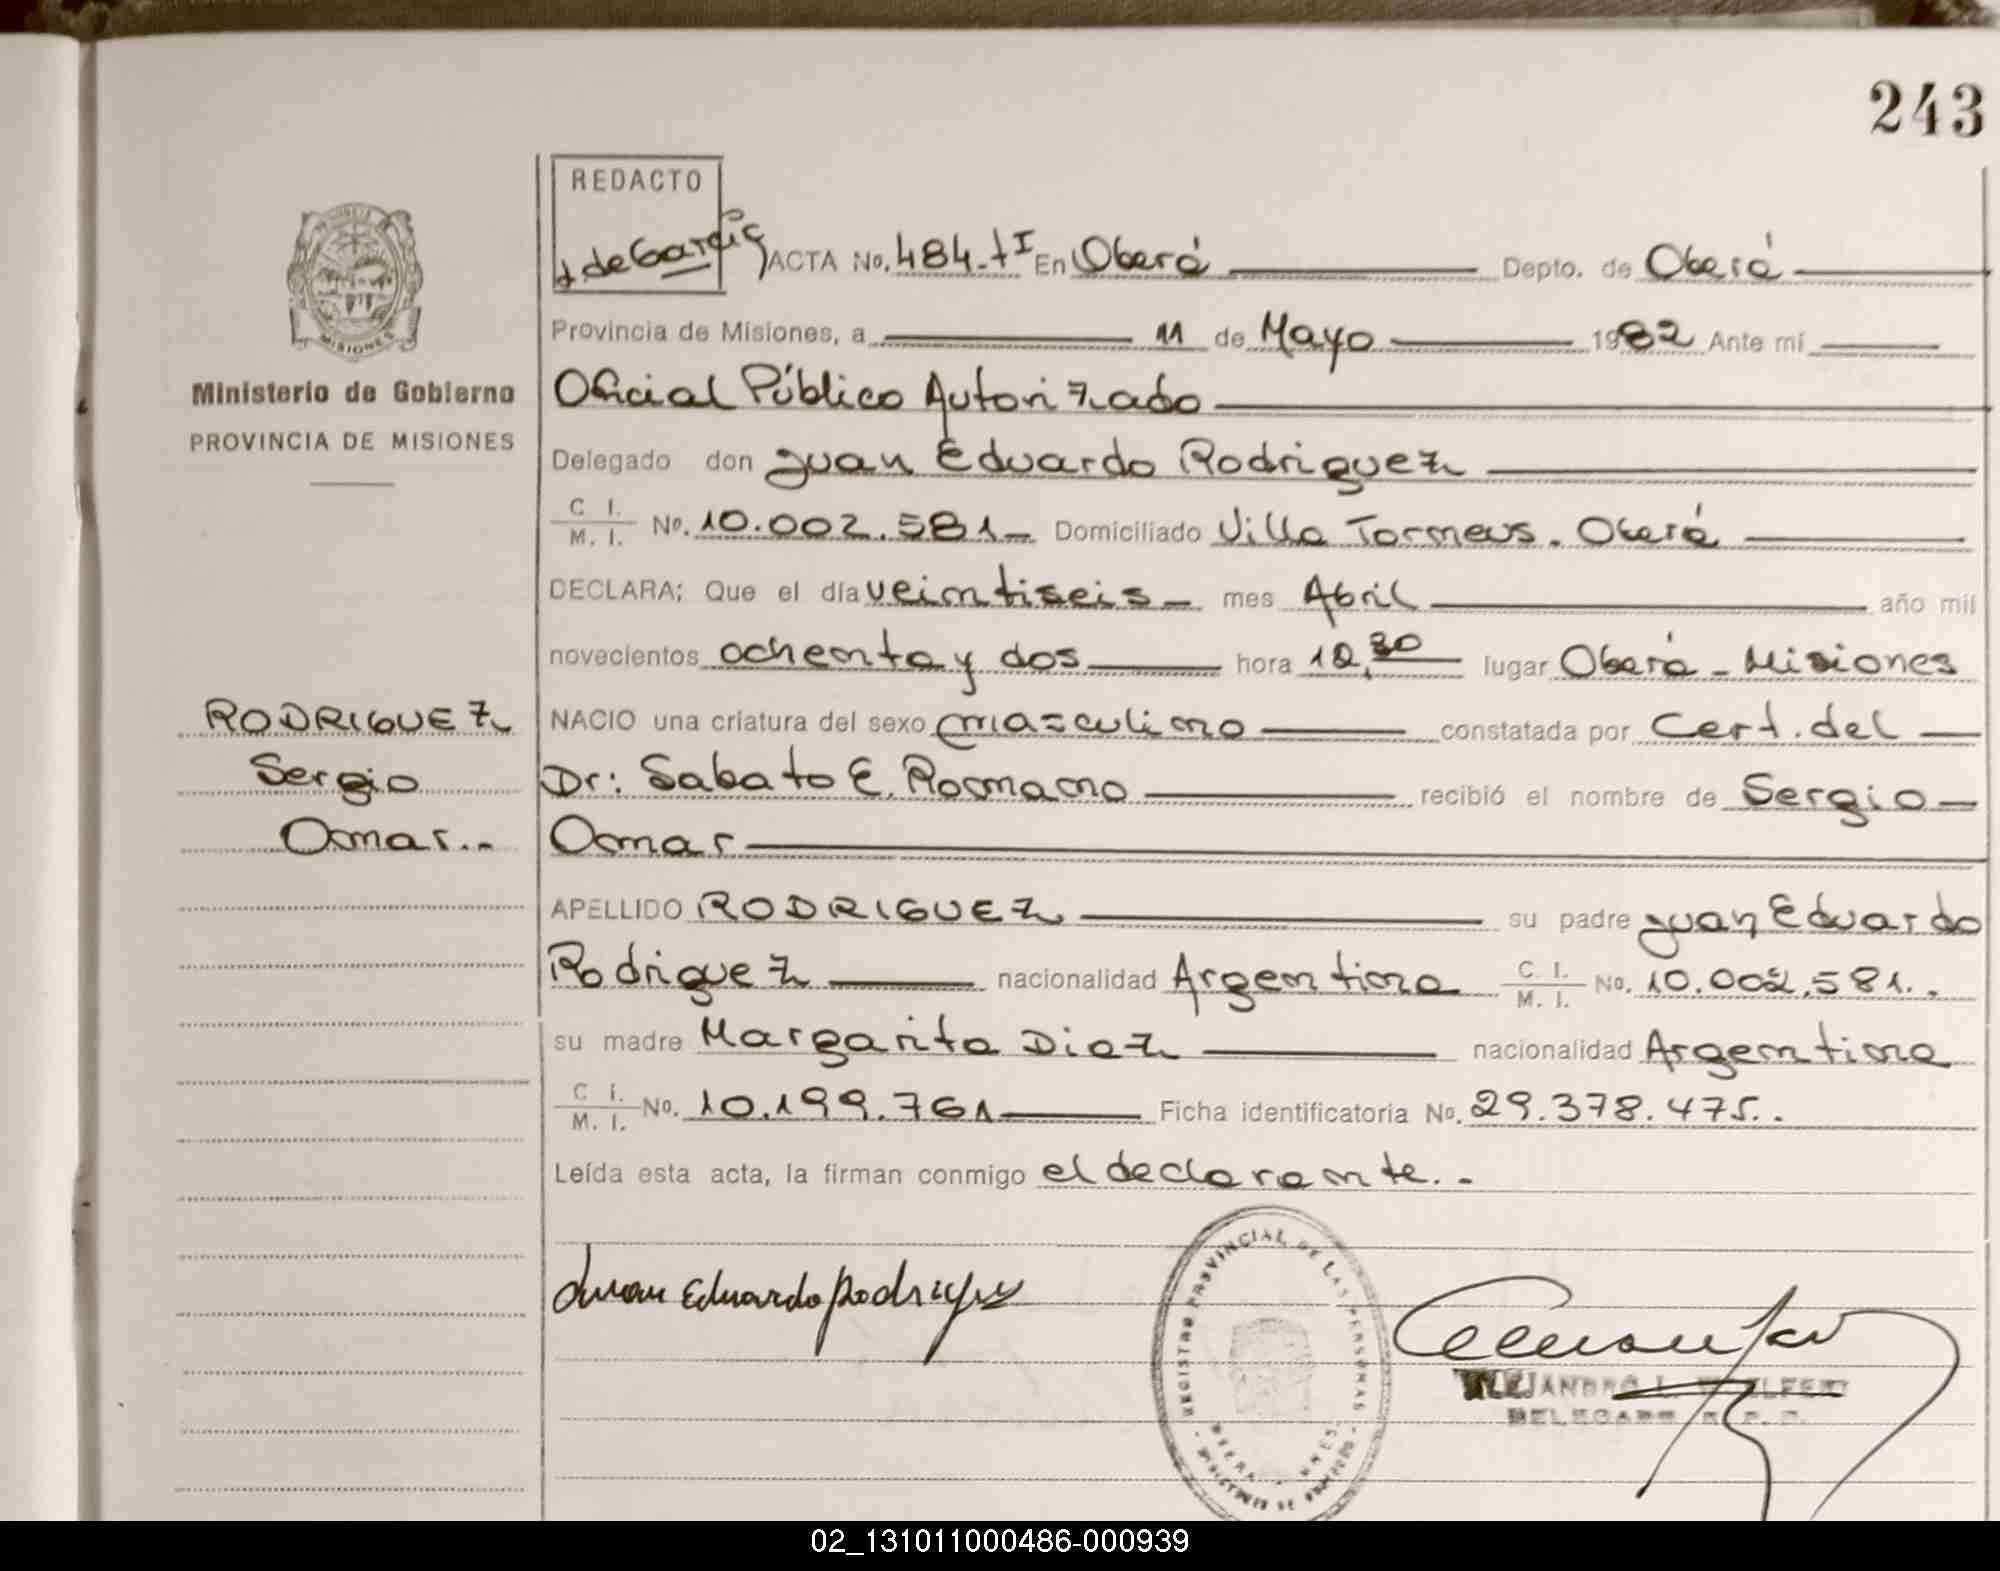 243
REDACTO
de Garcia
ACTA No. 484-tI En Oberá Depto. de Oberá
MISIONES
Provincia de Misiones, a 11 de Mayo 1982 Ante mí
Ministerio de Gobierno
Oficial Público Autorizado
PROVINCIA DE MISIONES
Delegado don Juan Eduardo Rodriguez
C. I.
M. I. No. 10.002.581- Domiciliado Villa Torneus. Oberá
DECLARA; Que el día veintiseis- mes Abril año mil
novecientos ochenta y dos hora lugar Oberá - Misiones
RODRIGUEZ
NACIO una criatura del sexo masculino constatada por Cert. del
Sergio
Dr: Sabato E. Romano recibió el nombre de Sergio-
Omar.-
Omar
APELLIDO RODRIGUEZ su padre Juan Eduardo
Rodriguez nacionalidad Argentina C. I.
M. I. No. 10.002.581..
su madre Margarita Diaz nacionalidad Argentina
C. I.
M. I. No. 10.199.761 Ficha identificatoria No. 29.378.475..
Leída esta acta, la firman conmigo el declarante..-
Juan Eduardo Rodriguez
REGISTRO PROVINCIAL DE LAS PERSONAS
ALEJANDRO L.
DELEGADO R. P. P.
02_131011000486-000939